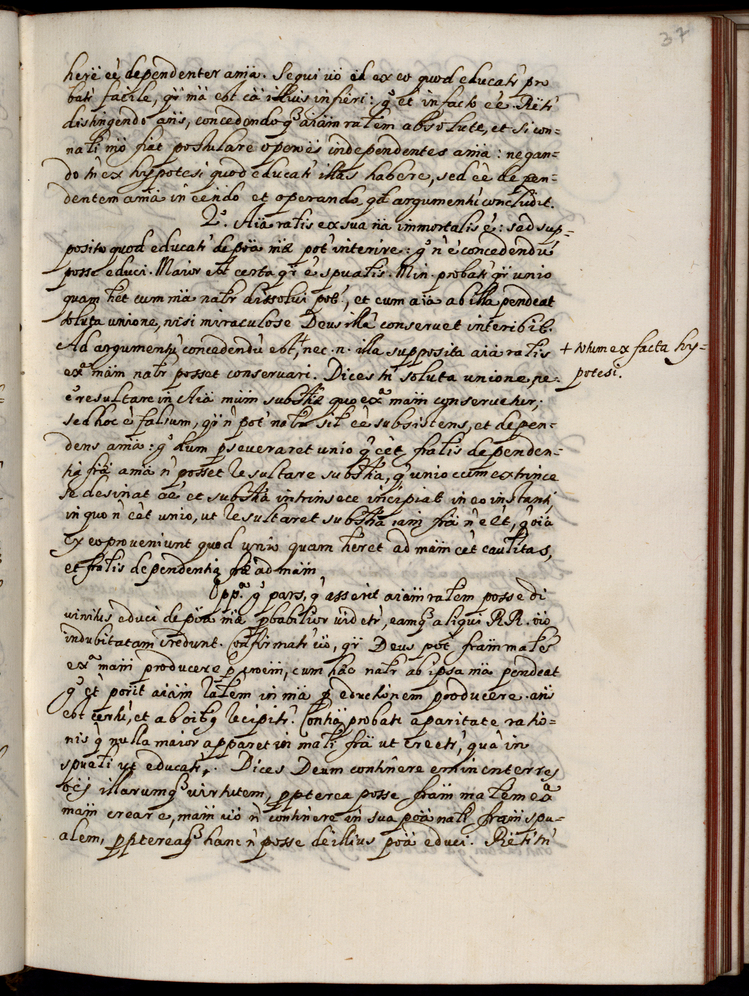 37
here ē dependenter a mā. Sequi vō id ex eo quod educatr pro
batr facile, qr mā est cā illius in fieri: gº et in facto ēē. Rētr
distinguendo ans, concedendo qº aīam ralem absolutè, et si con=
nali mō fiat postulare operōēs independentes a mā: negan=
do tn ex hypotesi quod educatr illas habere, sed ēē depen=
dentem a mā in ēēndo et operando, qd argumentū concludit.
2º. Aīa ralis ex sua nā immortalis ē: sed sup=
posito quod educatr de poā māe pot interire: gº n ē concedendū
posse educi. Maior est certa qr ē spualis. Min. probatr qr unio
quam het cum mā natr dissolui pot, et cum aīa ab illa pendeat
soluta unione, nisi miraculose Deus illā conservet interibit.
Ad argumentū concedendū est,+ nec .n. illa supposita aīa ralis
exª mām natr posset conservari. Dices tn soluta unione
resultare in Aīa subst̄ia quo exª mām conservetur;
sed hoc ē falsum, qr n pot natr sit ēē subsistens, et depen=
dens a mā: gº dum perseveraret unio qª cēt fralis dependen=
tia frā a mā n posset resultare subst̄ia, qª unio cum extrince
se desinat cē et subst̄ia intrinsece incipiat in eo instanti
in quo n cēt unio, ut resultaret subst̄ia iam frā n ēēt, qª oīa
ex eo proveniunt quod unio quam heret ad mām cēt causalitas,
et fralis dependentia frāe ad mām
Oppª qª pars, qª asserit aīam ralem posse di
vinitus educi de poā māe probabilior videtr, eamqº aliqui RR. vō
indubitatam credunt. Confirmatr vō, qr Deus pot fram malem
exª mām producere per creōēm, cum hāc natr ab ipsa mā pendeat
gº et poterit aīam ralem in mā per eductionem producere. ans
est certū, et ab oībus recipitr. Contia probatr a paritate ratio=
nis qª nulla maior apparet in mali frā ut creetr, quā in
spuali ut educatr. Dices Deum continere eminenter res
oēs illarumqº virtutem, propterea posse fram malem exª
mām creare, mām vō n continere in sua poā natr. fram spu=
alem, proptereaqº hanc n posse de illius poā educi. Rētr tn
+ totum ex facta hy=
potesi.